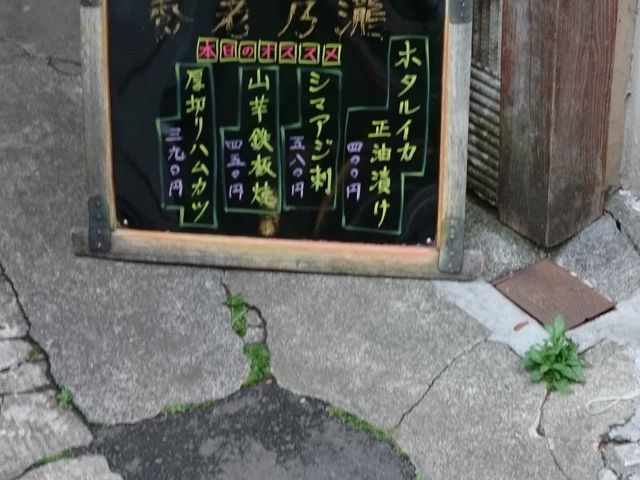 養老乃瀧
本日のオススメ
ホタルイカ
正油漬け
四〇〇円
シマアジ刺
五八〇円
山芋鉄板焼
四五〇円
厚切りハムカツ
三九〇円